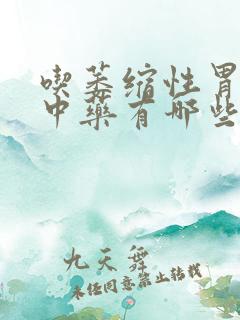 喫萎缩性胃
中藥有哪些
九天舞
未经同意禁止转载